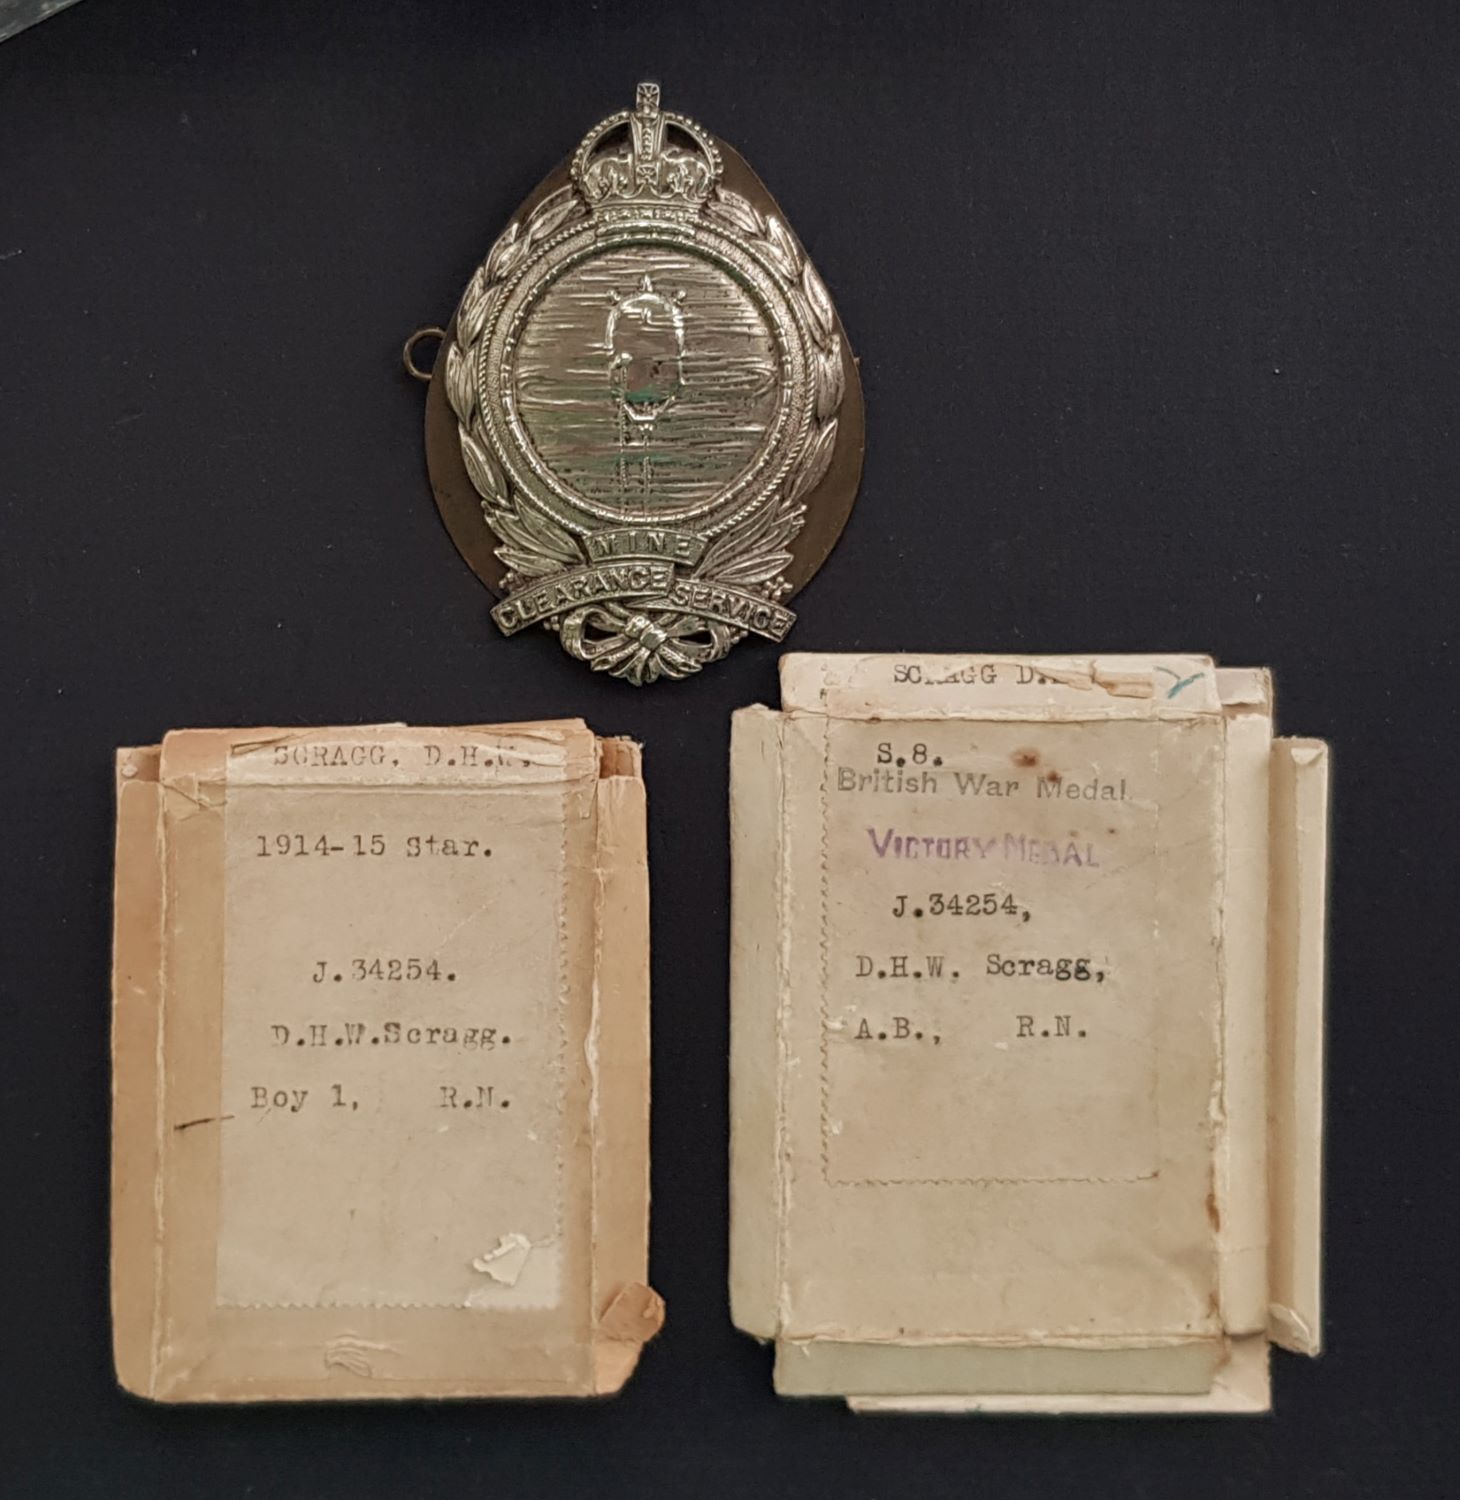 MINE
CLEARANCE SERVICE
SCRAGG, D.H.W.
1914-15 Star.
J.34254.
D.H.W.Scragg.
Boy 1, R.N.
SCRAGG
S.8.
British War Medal.
VICTORY MEDAL
J.34254,
D.H.W. Scragg,
A.B., R.N.